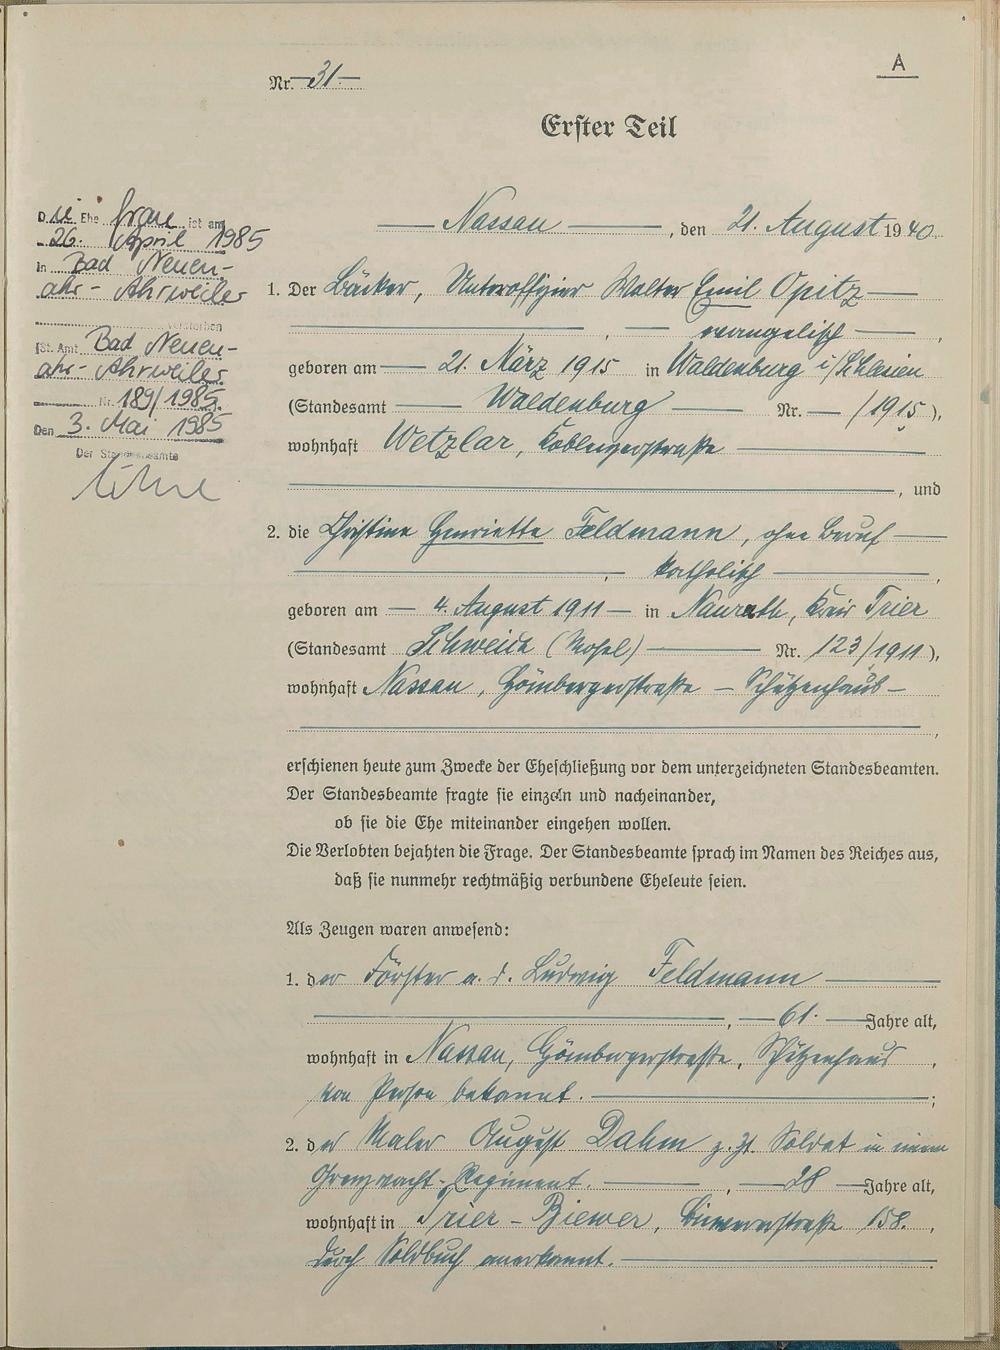 A
Nr. 31
Erster Teil
Die Ehefrau ist am
26. April 1985
in Bad Neuen-
ahr-Ahrweiler
verstorben
(St. Amt Bad Neuen-
ahr-Ahrweiler
Nr. 189/1985.
Den 3. Mai 1985
Der Standesbeamte
Nassau, den 21. August 1940.
1. Der Bäcker, Unteroffizier Walter Emil Opitz
, evangelisch,
geboren am 21. März 1915 in Waldenburg i/Schlesien
(Standesamt Waldenburg Nr. — /1915),
wohnhaft Wetzlar, Koblenzerstraße
, und
2. die Christine Henriette Feldmann, ohne Beruf
, katholisch,
geboren am 4. August 1911 in Naurath, Kreis Trier
(Standesamt Schweich (Mosel) Nr. 123/1911),
wohnhaft Nassau, Hömbergerstraße – Schützenhaus –
,
erschienen heute zum Zwecke der Eheschließung vor dem unterzeichneten Standesbeamten.
Der Standesbeamte fragte sie einzeln und nacheinander,
ob sie die Ehe miteinander eingehen wollen.
Die Verlobten bejahten die Frage. Der Standesbeamte sprach im Namen des Reiches aus,
daß sie nunmehr rechtmäßig verbundene Eheleute seien.
Als Zeugen waren anwesend:
1. der Förster a. D. Ludwig Feldmann
, 61. Jahre alt,
wohnhaft in Nassau, Hömbergerstraße, Schützenhaus,
von Person bekannt. ;
2. der Maler August Dahm z. Zt. Soldat in einem
Grenzwacht-Regiment. , 28 Jahre alt,
wohnhaft in Trier-Biewer, Biewererstraße 158.,
durch Soldbuch anerkannt.